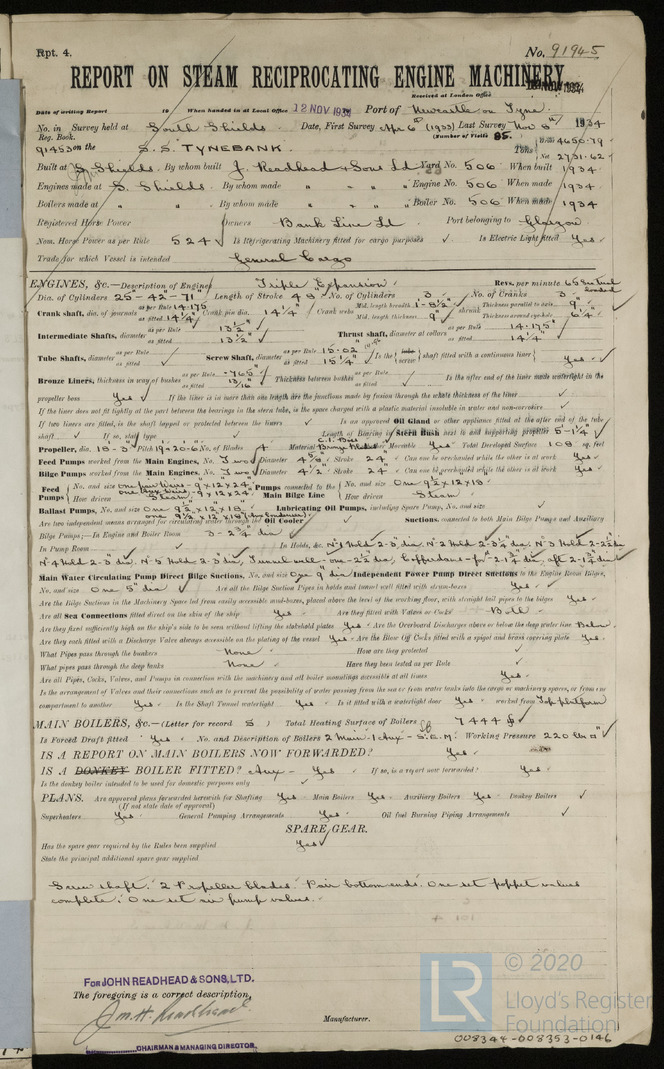 Rpt. 4. No. 91945
REPORT ON STEAM RECIPROCATING ENGINE MACHINERY.
Received at London Office NOV 1934
Date of writing Report 19 When handed in at Local Office 12 NOV 1934 Port of Newcastle on Tyne.
No. in Survey held at South Shields. Date, First Survey Apr 6th (1933) Last Survey Nov 1934
Reg. Book. (Number of Visits 85.
91453 on the S.S. TYNEBANK. Tons Gross 4650.79
Net 2731.62
Built at S. Shields. By whom built J. Readhead & Sons Ld Yard No. 506 When built 1934
Engines made at S. Shields. By whom made " " " Engine No. 506 When made 1934
Boilers made at " By whom made " " " Boiler No. 506 When made 1934
Registered Horse Power Owners Bank Line Ld Port belonging to Glasgow
Nom. Horse Power as per Rule 524 Is Refrigerating Machinery fitted for cargo purposes Is Electric Light fitted Yes
Trade for which Vessel is intended General Cargo
ENGINES, &c.—Description of Engines Triple Expansion Revs. per minute 65
Dia. of Cylinders 25-42-71" Length of Stroke 48 No. of Cylinders 3 No. of Cranks 3
Crank shaft, dia. of journals as per Rule 14.175 as fitted 14 1/4" Crank pin dia. 14 1/4" Crank webs Mid. length breadth 1-8 1/2" Mid. length thickness 9" shrunk Thickness parallel to axis 9" Thickness around eyehole 6 1/4"
Intermediate Shafts, diameter as per Rule 13 1/2" as fitted 13 1/2" Thrust shaft, diameter at collars as per Rule 14.175" as fitted 14 1/4"
Tube Shafts, diameter as per Rule as fitted Screw Shaft, diameter as per Rule 15.02" as fitted 15 1/4" Is the tube screw shaft fitted with a continuous liner Yes
Bronze Liners, thickness in way of bushes as per Rule .765" as fitted 13/16" Thickness between bushes as per Rule as fitted Is the after end of the liner made watertight in the
propeller boss Yes If the liner is in more than one length are the junctions made by fusion through the whole thickness of the liner
If the liner does not fit tightly at the part between the bearings in the stern tube, is the space charged with a plastic material insoluble in water and non-corrosive
If two liners are fitted, is the shaft lapped or protected between the liners Is an approved Oil Gland or other appliance fitted at the after end of the tube
shaft If so, state type Length of Bearing in Stern Bush next to and supporting propeller 5-1 1/4"
Propeller, dia. 18-3" Pitch 19×20-6 No. of Blades 4 Material C.I. Boss Bronze Blades whether Moveable Yes Total Developed Surface 108 sq. feet
Feed Pumps worked from the Main Engines, No. Two Diameter 4 5/8 Stroke 24" Can one be overhauled while the other is at work Yes
Bilge Pumps worked from the Main Engines, No. Two Diameter 4 1/2" Stroke 24" Can one be overhauled while the other is at work Yes
Feed Pumps No. and size one Weirs - 9×12×24 How driven Steam. Pumps connected to the Main Bilge Line No. and size One 9 1/2×12×18 How driven Steam
Ballast Pumps, No. and size One 9 1/2×12×18 Lubricating Oil Pumps, including Spare Pump, No. and size
Are two independent means arranged for circulating water through the Oil Cooler Suctions, connected to both Main Bilge Pumps and Auxiliary
Bilge Pumps;—In Engine and Boiler Room 3 - 2 3/4" dia
In Pump Room In Holds, &c. No 1 Hold 2-3" dia. No 2 Hold 2-3 1/4" dia. No 3 Hold 2-2 1/2" dia
No 4 Hold 2-3" dia. No 5 Hold 2-3" dia, Tunnel well - one - 2 1/2" dia, Cofferdams - for'd 2-1 3/4" dia, aft 2-1 3/4" dia
Main Water Circulating Pump Direct Bilge Suctions, No. and size One 9" dia Independent Power Pump Direct Suctions to the Engine Room Bilges,
No. and size One 5" dia Are all the Bilge Suction Pipes in holds and tunnel well fitted with strum-boxes Yes
Are the Bilge Suctions in the Machinery Space led from easily accessible mud-boxes, placed above the level of the working floor, with straight tail pipes to the bilges Yes
Are all Sea Connections fitted direct on the skin of the ship Yes Are they fitted with Valves or Cocks Both
Are they fixed sufficiently high on the ship's side to be seen without lifting the stokehold plates Yes Are the Overboard Discharges above or below the deep water line Below
Are they each fitted with a Discharge Valve always accessible on the plating of the vessel Yes Are the Blow Off Cocks fitted with a spigot and brass covering plate Yes.
What Pipes pass through the bunkers None How are they protected
What pipes pass through the deep tanks None Have they been tested as per Rule
Are all Pipes, Cocks, Valves, and Pumps in connection with the machinery and all boiler mountings accessible at all times Yes
Is the arrangement of Valves and their connections such as to prevent the possibility of water passing from the sea or from water tanks into the cargo or machinery spaces, or from one
compartment to another Yes Is the Shaft Tunnel watertight Yes Is it fitted with a watertight door Yes worked from Top platform
MAIN BOILERS, &c.—(Letter for record S) Total Heating Surface of Boilers 7444
Is Forced Draft fitted Yes No. and Description of Boilers 2 Main 1 Aux - S.E.M. Working Pressure 220 lbs
IS A REPORT ON MAIN BOILERS NOW FORWARDED? Yes
IS A DONKEY BOILER FITTED? Aux - Yes If so, is a report now forwarded? Yes
Is the donkey boiler intended to be used for domestic purposes only
PLANS. Are approved plans forwarded herewith for Shafting Yes Main Boilers Yes Auxiliary Boilers Yes Donkey Boilers
(If not state date of approval)
Superheaters Yes General Pumping Arrangements Yes Oil fuel Burning Piping Arrangements
SPARE GEAR.
Has the spare gear required by the Rules been supplied Yes
State the principal additional spare gear supplied
Screw shaft. 2 Propeller blades. Pair bottom ends. One set poppet valves
complete. One set air pump valves.
FOR JOHN READHEAD & SONS, LTD.
The foregoing is a correct description,
Jas. H. Readhead
Manufacturer.
CHAIRMAN & MANAGING DIRECTOR
© 2020
LR
Lloyd's Register
Foundation
008344-008353-0146